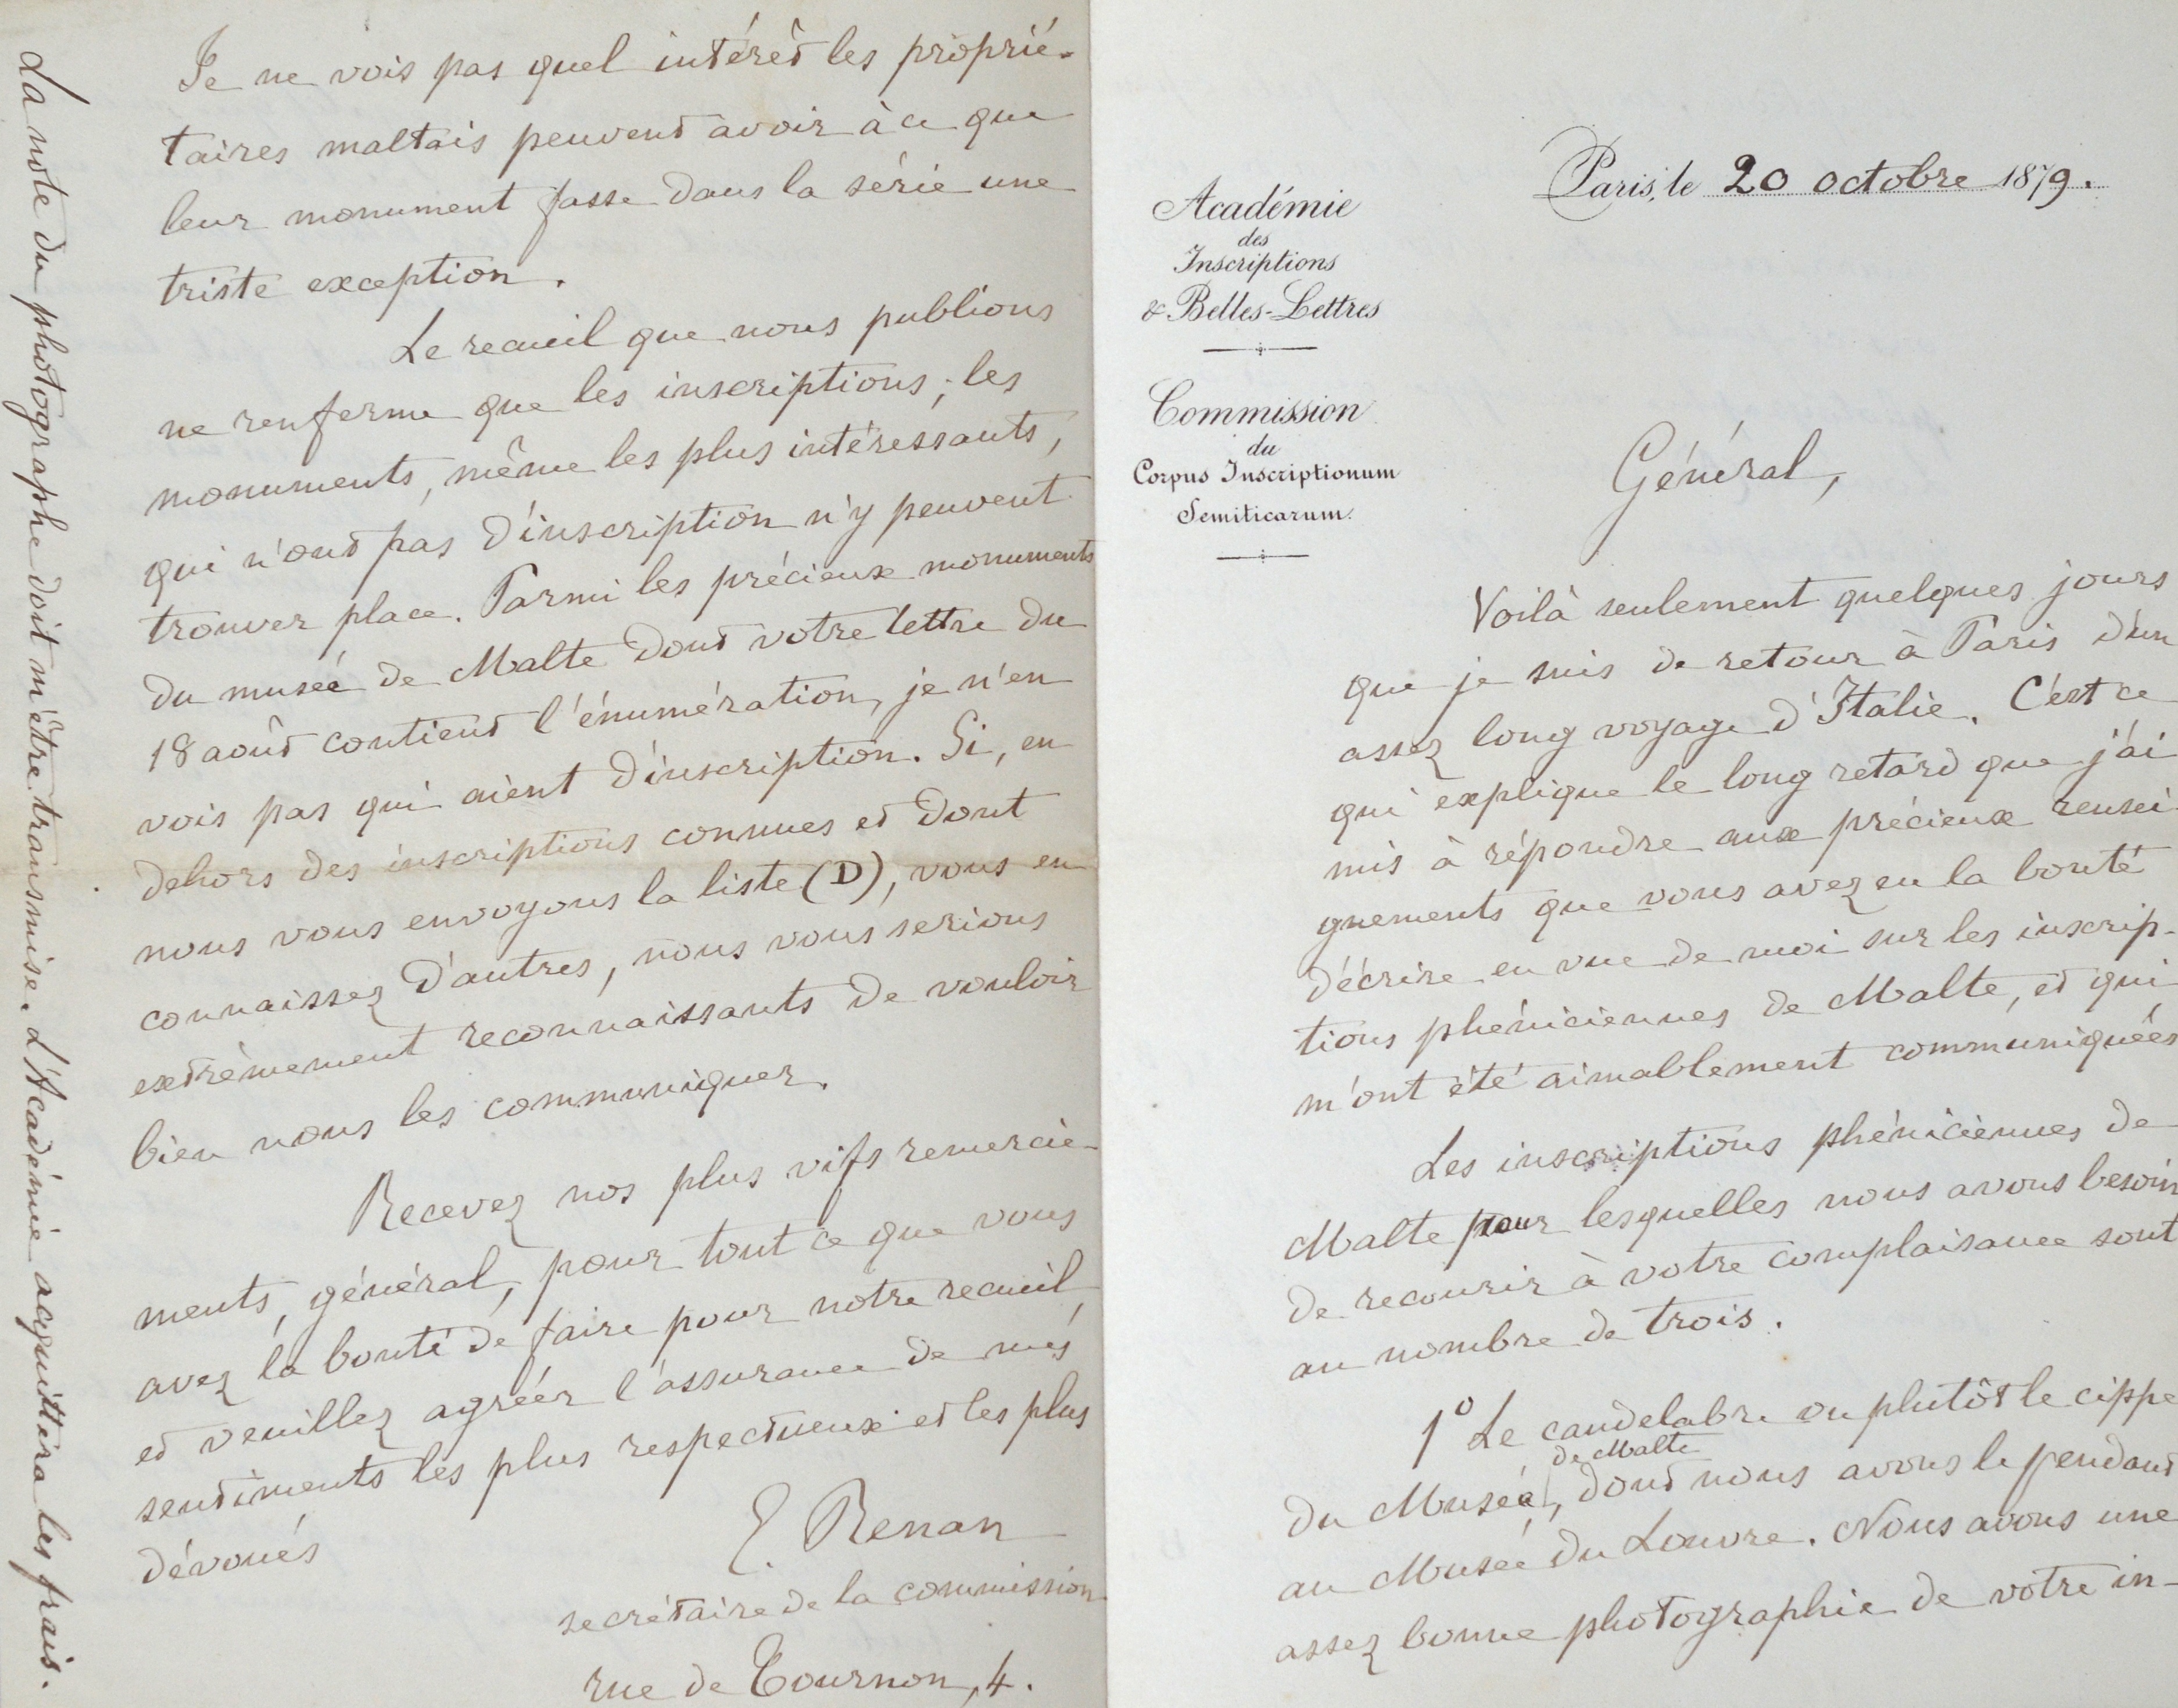 Je ne vois pas quel intérêt les proprié-
taires maltais peuvent avoir à ce que
leur monument fasse dans la série une
triste exception.
Le recueil que nous publions
ne renferme que les inscriptions ; les
monuments, même les plus intéressants,
qui n'ont pas d'inscription n'y peuvent
trouver place. Parmi les précieux monuments
du musée de Malte dont votre lettre du
18 août contient l'énumération, je n'en
vois pas qui aient d'inscription. Si, en
dehors des inscriptions connues et dont
nous vous envoyons la liste (D), vous en
connaissez d'autres, nous vous serions
extrêmement reconnaissants de vouloir
bien nous les communiquer.
Recevez nos plus vifs remercie-
ments, général, pour tout ce que vous
avez la bonté de faire pour notre recueil,
et veuillez agréér l'assurance de mes
sentiments les plus respectueux et les plus
dévoués
E. Renan
secrétaire de la commission
rue de Tournon, 4.
La note du photographe doit m'être transmise. L'Académie acquittera les frais.
Paris, le 20 octobre 1879.
Académie
des
Inscriptions
& Belles-Lettres
Commission
du
Corpus Inscriptionum
Semiticarum.
Général,
Voilà seulement quelques jours
que je suis de retour à Paris d'un
assez long voyage d'Italie. C'est ce
qui explique le long retard que j'ai
mis à répondre aux précieux rensei
gnements que vous avez eu la bonté
d'écrire en vue de moi sur les inscrip-
tions phéniciennes de Malte, et qui
m'ont été aimablement communiquées
Les inscriptions phéniciennes de
Malte pour lesquelles nous avons besoin
de recourir à votre complaisance sont
au nombre de trois.
1º Le candelabre ou plutôt le cippe
de Malte
du Musée, dont nous avons le pendant
au Musée du Louvre. Nous avons une
assez bonne photographie de votre in-